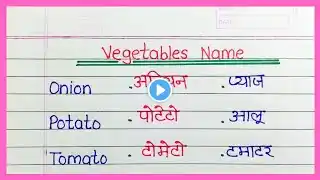 Vegetables Name
Onion . अनियन . प्याज
Potato . पोटेटो . आलू
Tomato . टोमेटो . टमाटर